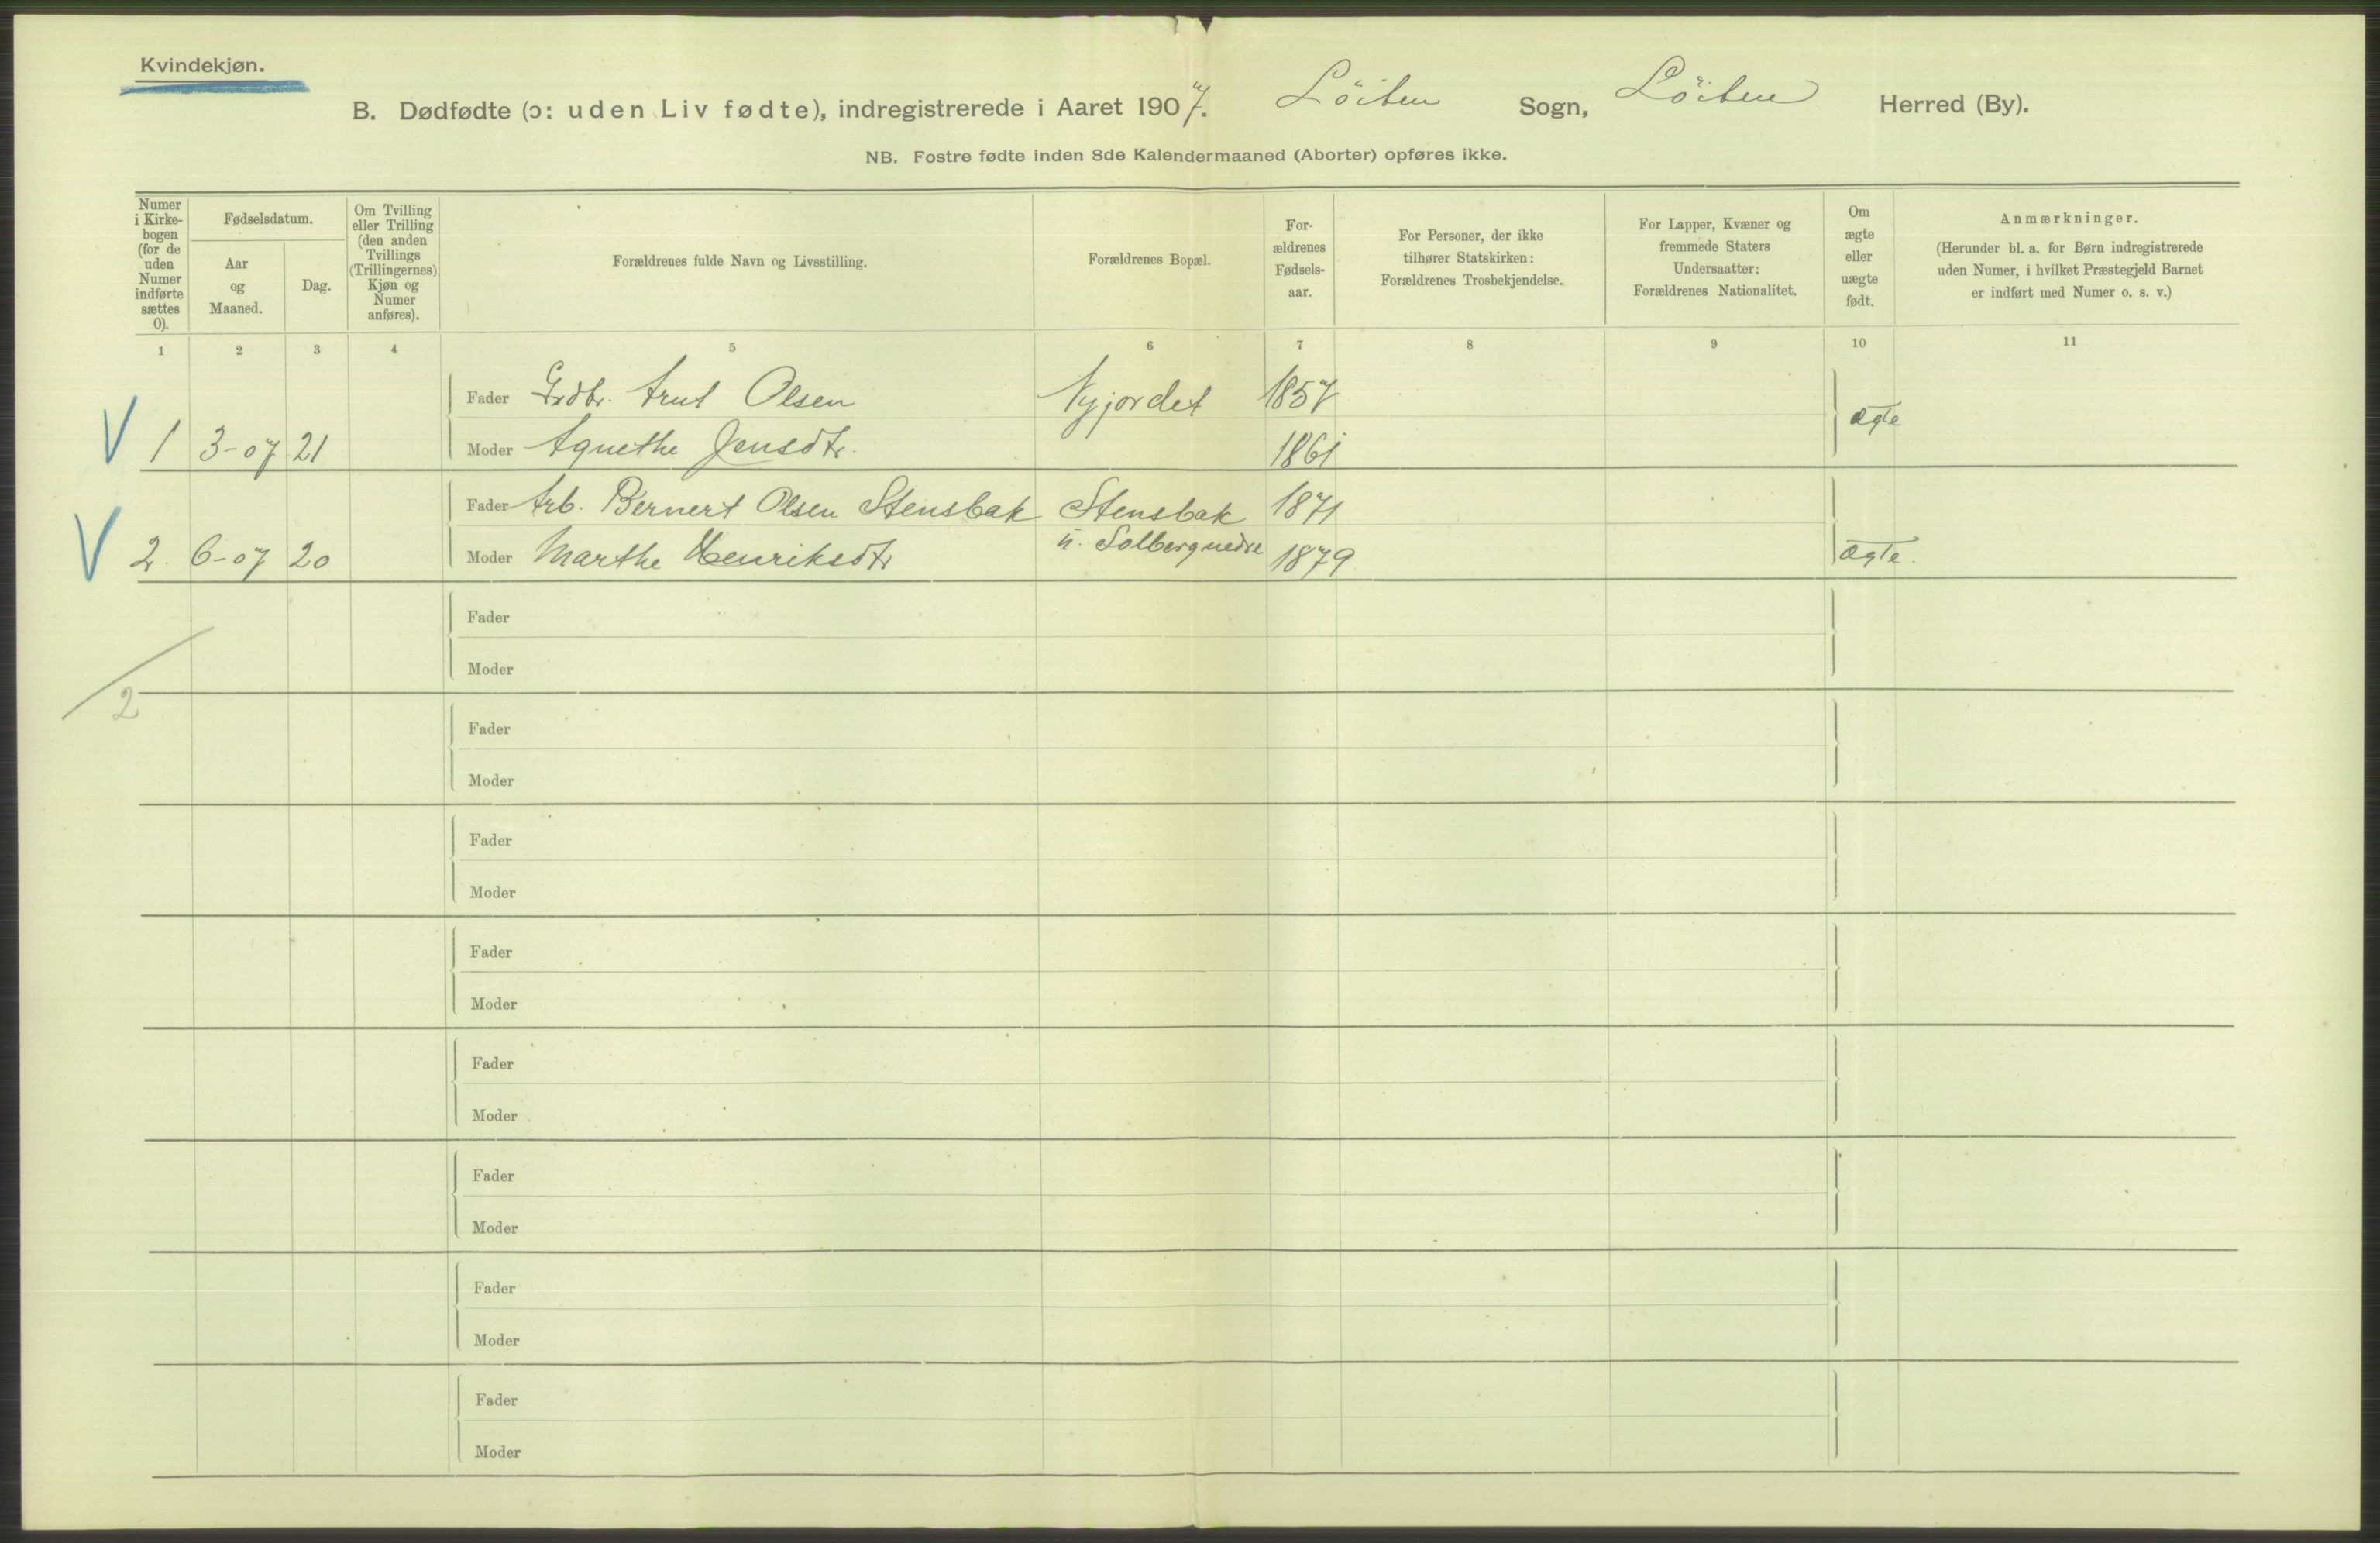 Kvindekjøn.
B. Dødfødte (ɔ: uden Liv fødte), indregistrerede i Aaret 1907. Löiten Sogn, Löiten Herred (By).
NB. Fostre fødte inden 8de Kalendermaaned (Aborter) opføres ikke.
Numer i Kirke- bogen (for de uden Numer indførte sættes 0).
Fødselsdatum.
Aar og Maaned.
Dag.
Om Tvilling eller Trilling (den anden Tvillings (Trillingernes) Kjøn og Numer anføres).
Forældrenes fulde Navn og Livsstilling.
Forældrenes Bopæl.
For- ældrenes Fødsels- aar.
For Personer, der ikke tilhører Statskirken: Forældrenes Trosbekjendelse.
For Lapper, Kvæner og fremmede Staters Undersaatter: Forældrenes Nationalitet.
Om ægte eller uægte født.
Anmærkninger.
(Herunder bl. a. for Børn indregistrerede uden Numer, i hvilket Præstegjeld Barnet er indført med Numer o. s. v.)
1 2 3 4 5 6 7 8 9 10 11
Fader Grdbr. Arnt Olsen Nyjordet 1857
V 1 3-07 21 Moder Agnethe Jensdtr. 1861 ægte
Fader Arb. Bernert Olsen Stensbak Stensbak 1871
V 2. 6-07 20 Moder Marthe Henriksdtr u. Solberg nedre 1879 ægte.
Fader
Moder
2
Fader
Moder
Fader
Moder
Fader
Moder
Fader
Moder
Fader
Moder
Fader
Moder
Fader
Moder